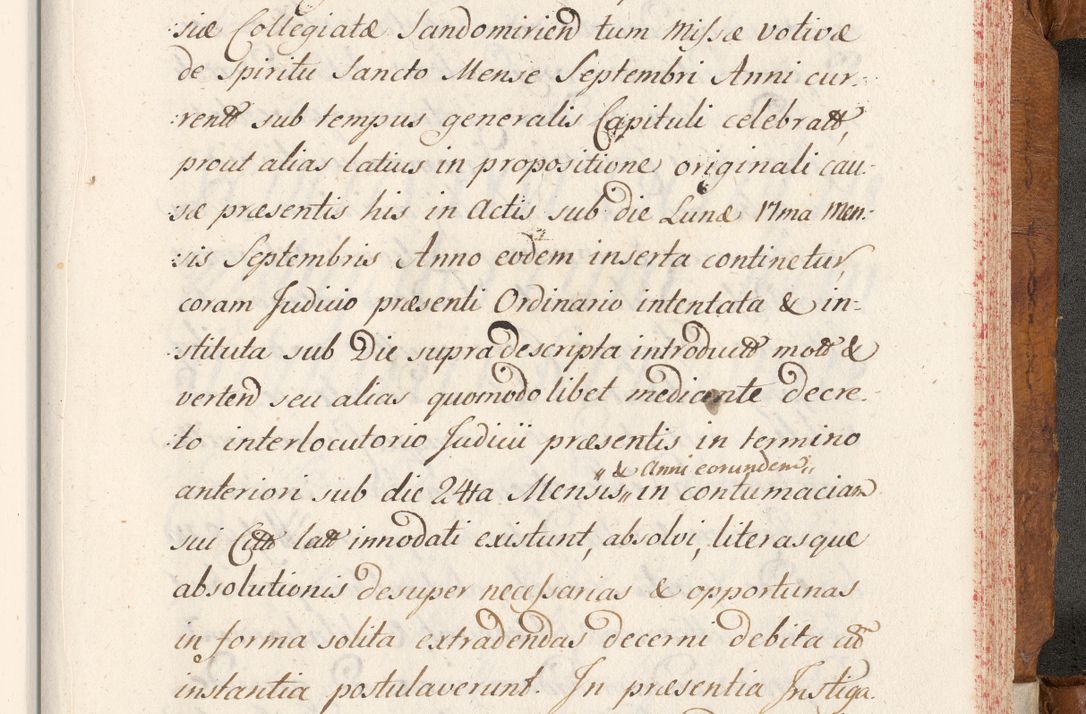 :siæ Collegiatæ Sandomirien tum Missæ votivæ
de Spiritu Sancto Mense Septembri Anni cur-
:rentt sub tempus generalis Capituli celebratt,
prout alias latius in propositione originali cau-
:sæ præsentis his in Actis sub die Lunæ 17ma Men:
:sis Septembris Anno eodem inserta continetur,
coram Judicio præsenti Ordinario intentata & in-
:stituta sub Die supra descripta introductt mott &
verten seu alias quomodolibet medicante decre-
:to interlocutorio Judicii præsentis in termino
anteriori sub die 24ta Mensis "& Anni eorundem" in contumaciam
sui Citt latt innodati existunt, absolvi, literasque
absolutionis desuper necessarias & opportunas
in forma solita extradendas decerni debita cu
instantia postulaverunt. In præsentia Instiga